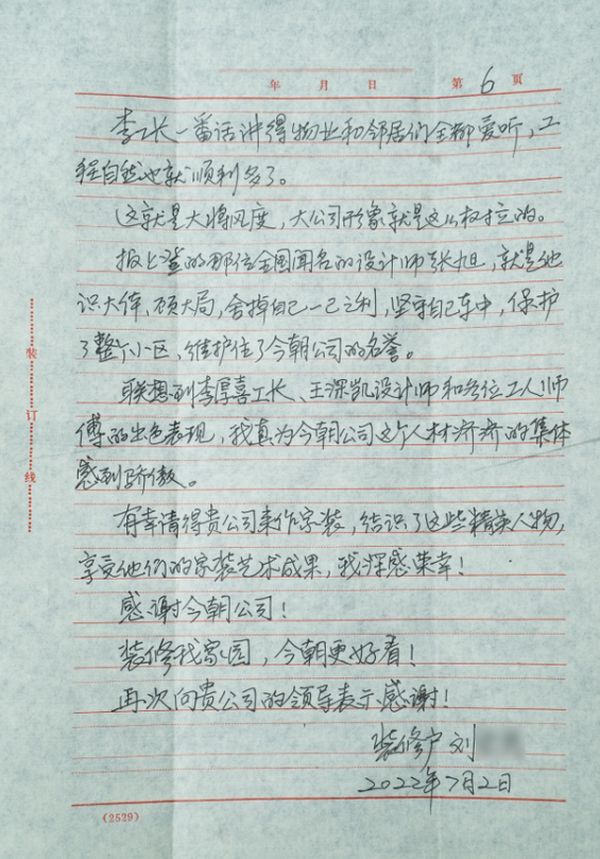 年 月 日 第 6 页
李工长一番话讲得物业和邻居们全都爱听，工
程自然也就顺利多了。
这就是大将风度，大公司形象就是这么树立的。
报上登的那位全国闻名的设计师张旭，就是他
识大体、顾大局，舍掉自己一己之利，坚守自己车中，保护
了整个小区，维护住了今朝公司的名誉。
联想到李厚喜工长、王深凯设计师和各位工人师
傅的出色表现，我真为今朝公司这个人材济济的集体
感到骄傲。
有幸请得贵公司来作家装，结识了这些精英人物，
享受他们的家装艺术成果，我深感荣幸！
感谢今朝公司！
装修我家园，今朝更好看！
再次向贵公司的领导表示感谢！
装修户 刘
2022年7月2日
装
订
线
(2529)